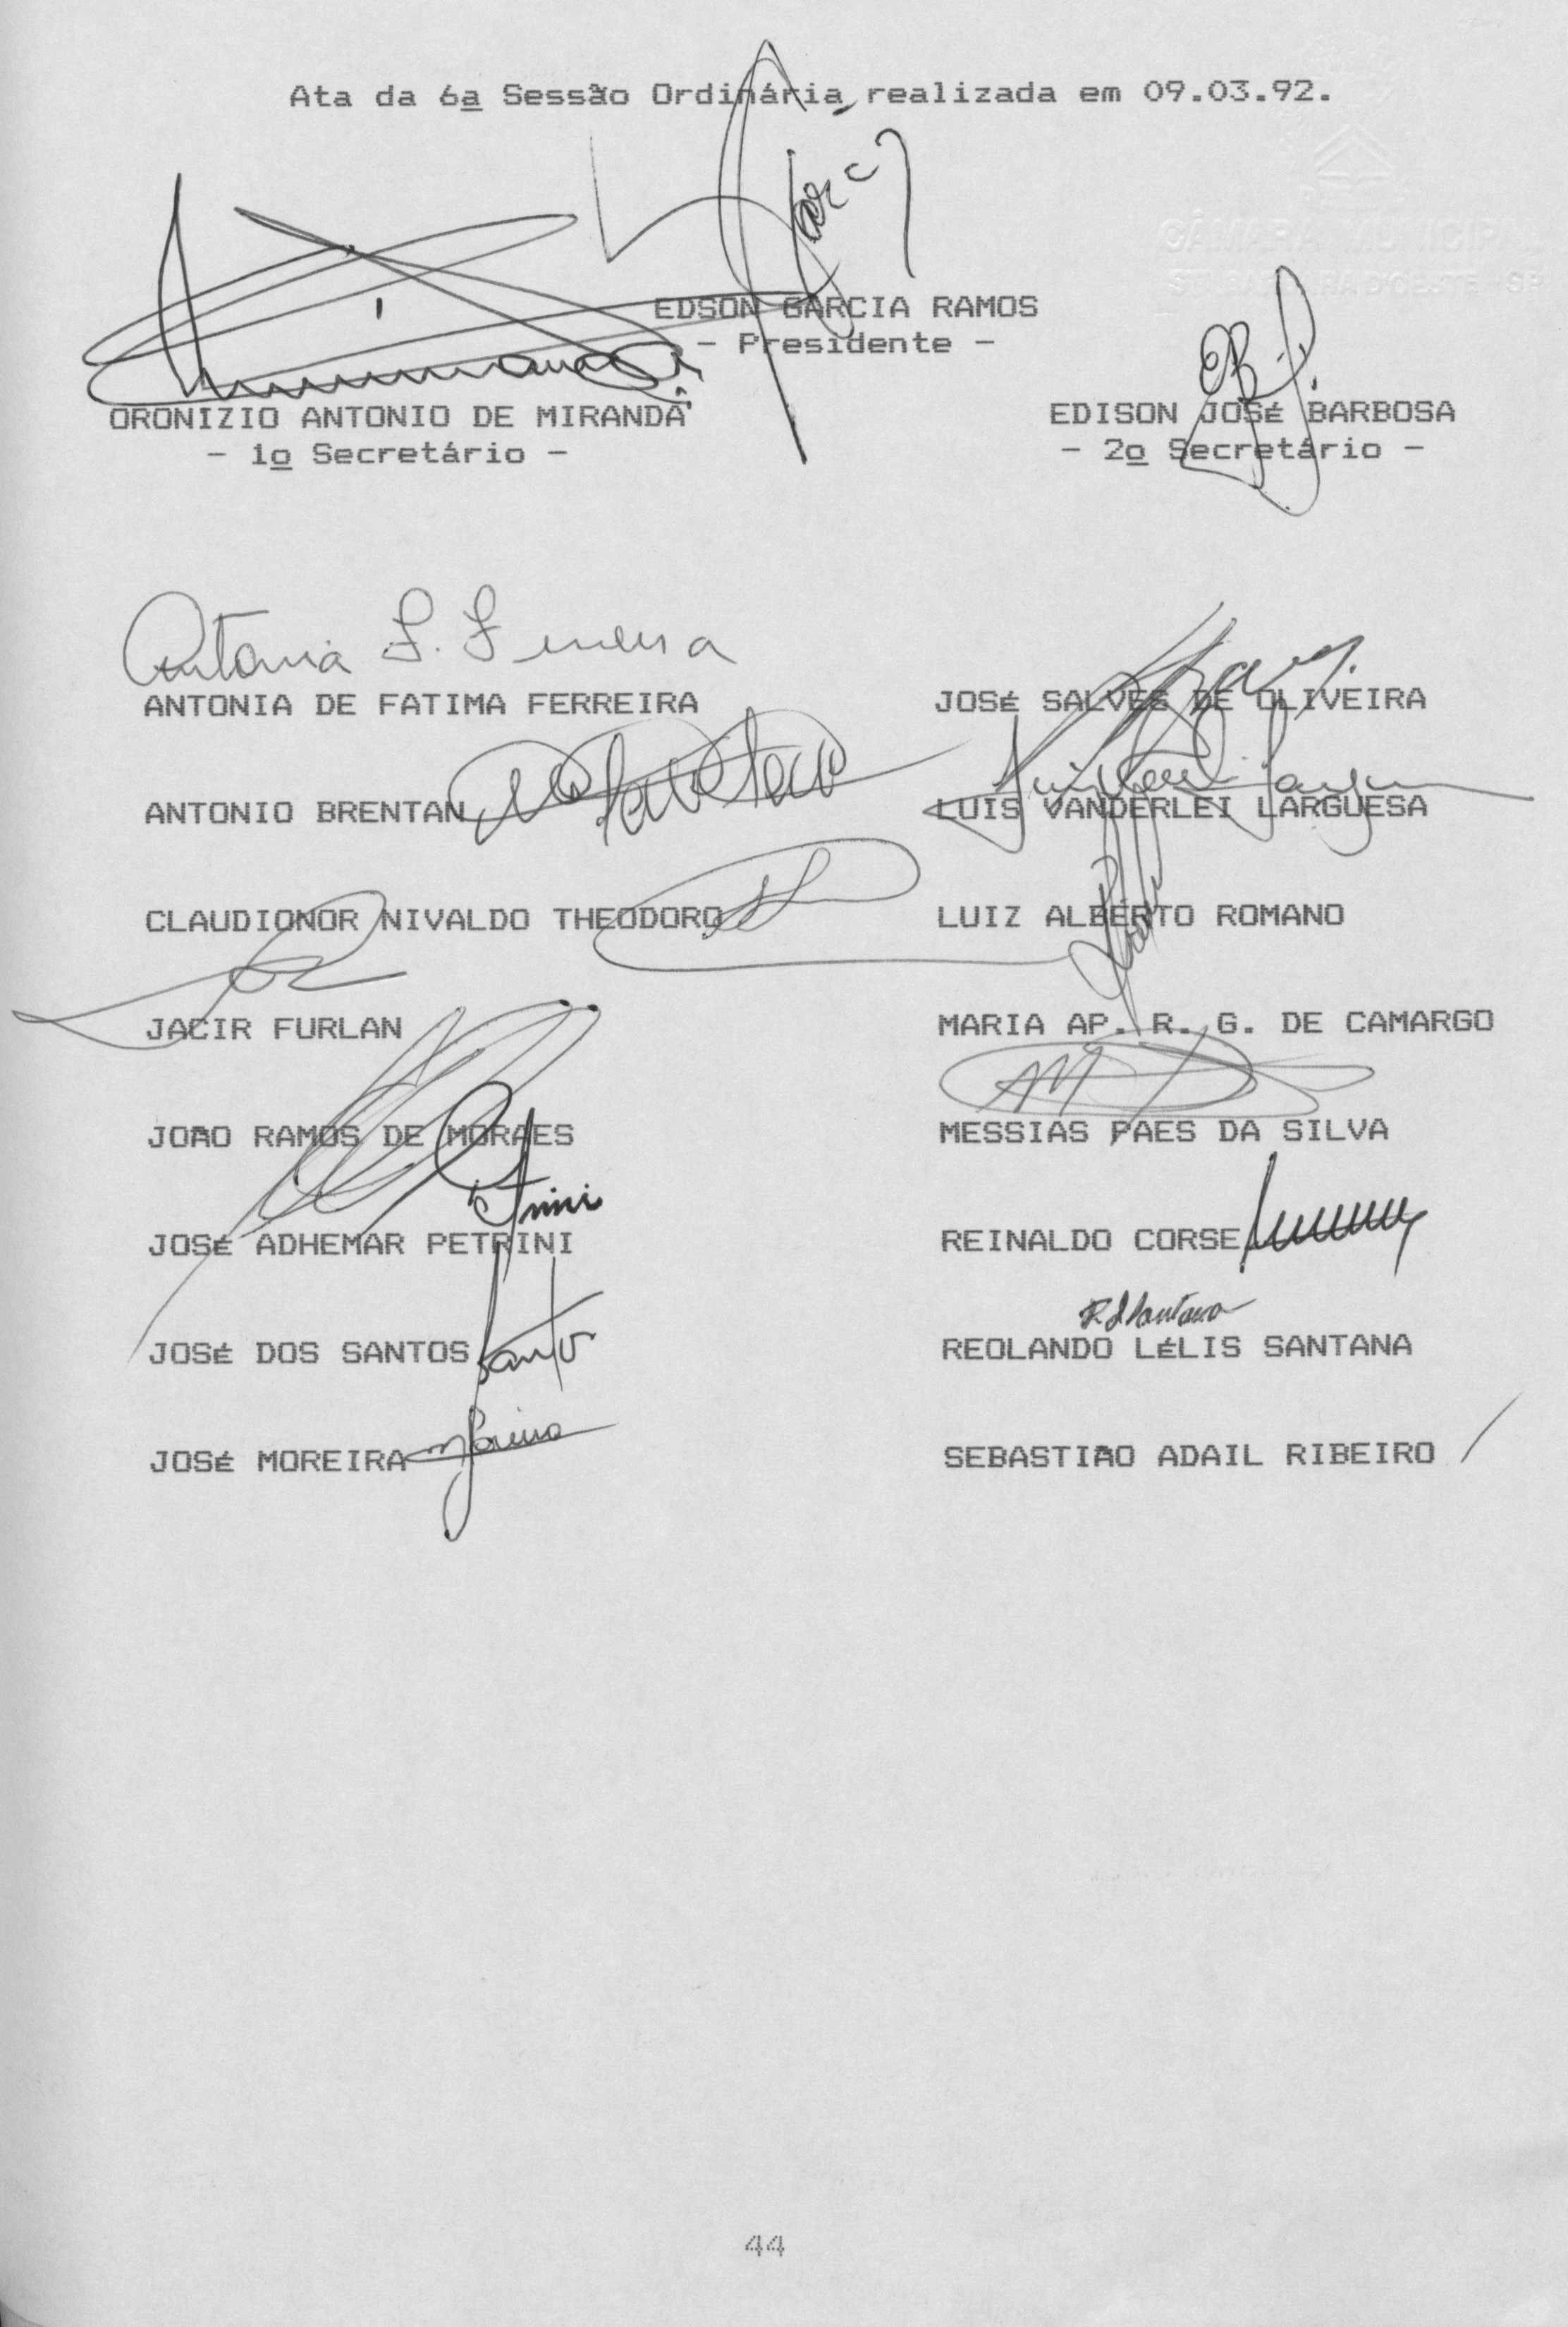 Ata da 6a Sessão Ordinária realizada em 09.03.92.
CÂMARA MUNICIP
EDSON GARCIA RAMOS
- Presidente -
ORONIZIO ANTONIO DE MIRANDA
- 1o Secretário -
EDISON JOSÉ BARBOSA
- 2o Secretário -
Antonia F. Ferreira
ANTONIA DE FATIMA FERREIRA
JOSÉ SALVES DE OLIVEIRA
ANTONIO BRENTAN
LUIS VANDERLEI LARGUESA
CLAUDIONOR NIVALDO THEODORO
LUIZ ALBERTO ROMANO
JACIR FURLAN
MARIA AP. R. G. DE CAMARGO
JOÃO RAMOS DE MORAES
MESSIAS PAES DA SILVA
JOSÉ ADHEMAR PETRINI
REINALDO CORSE
R L Santana
JOSÉ DOS SANTOS
REOLANDO LÉLIS SANTANA
JOSÉ MOREIRA
SEBASTIÃO ADAIL RIBEIRO
44